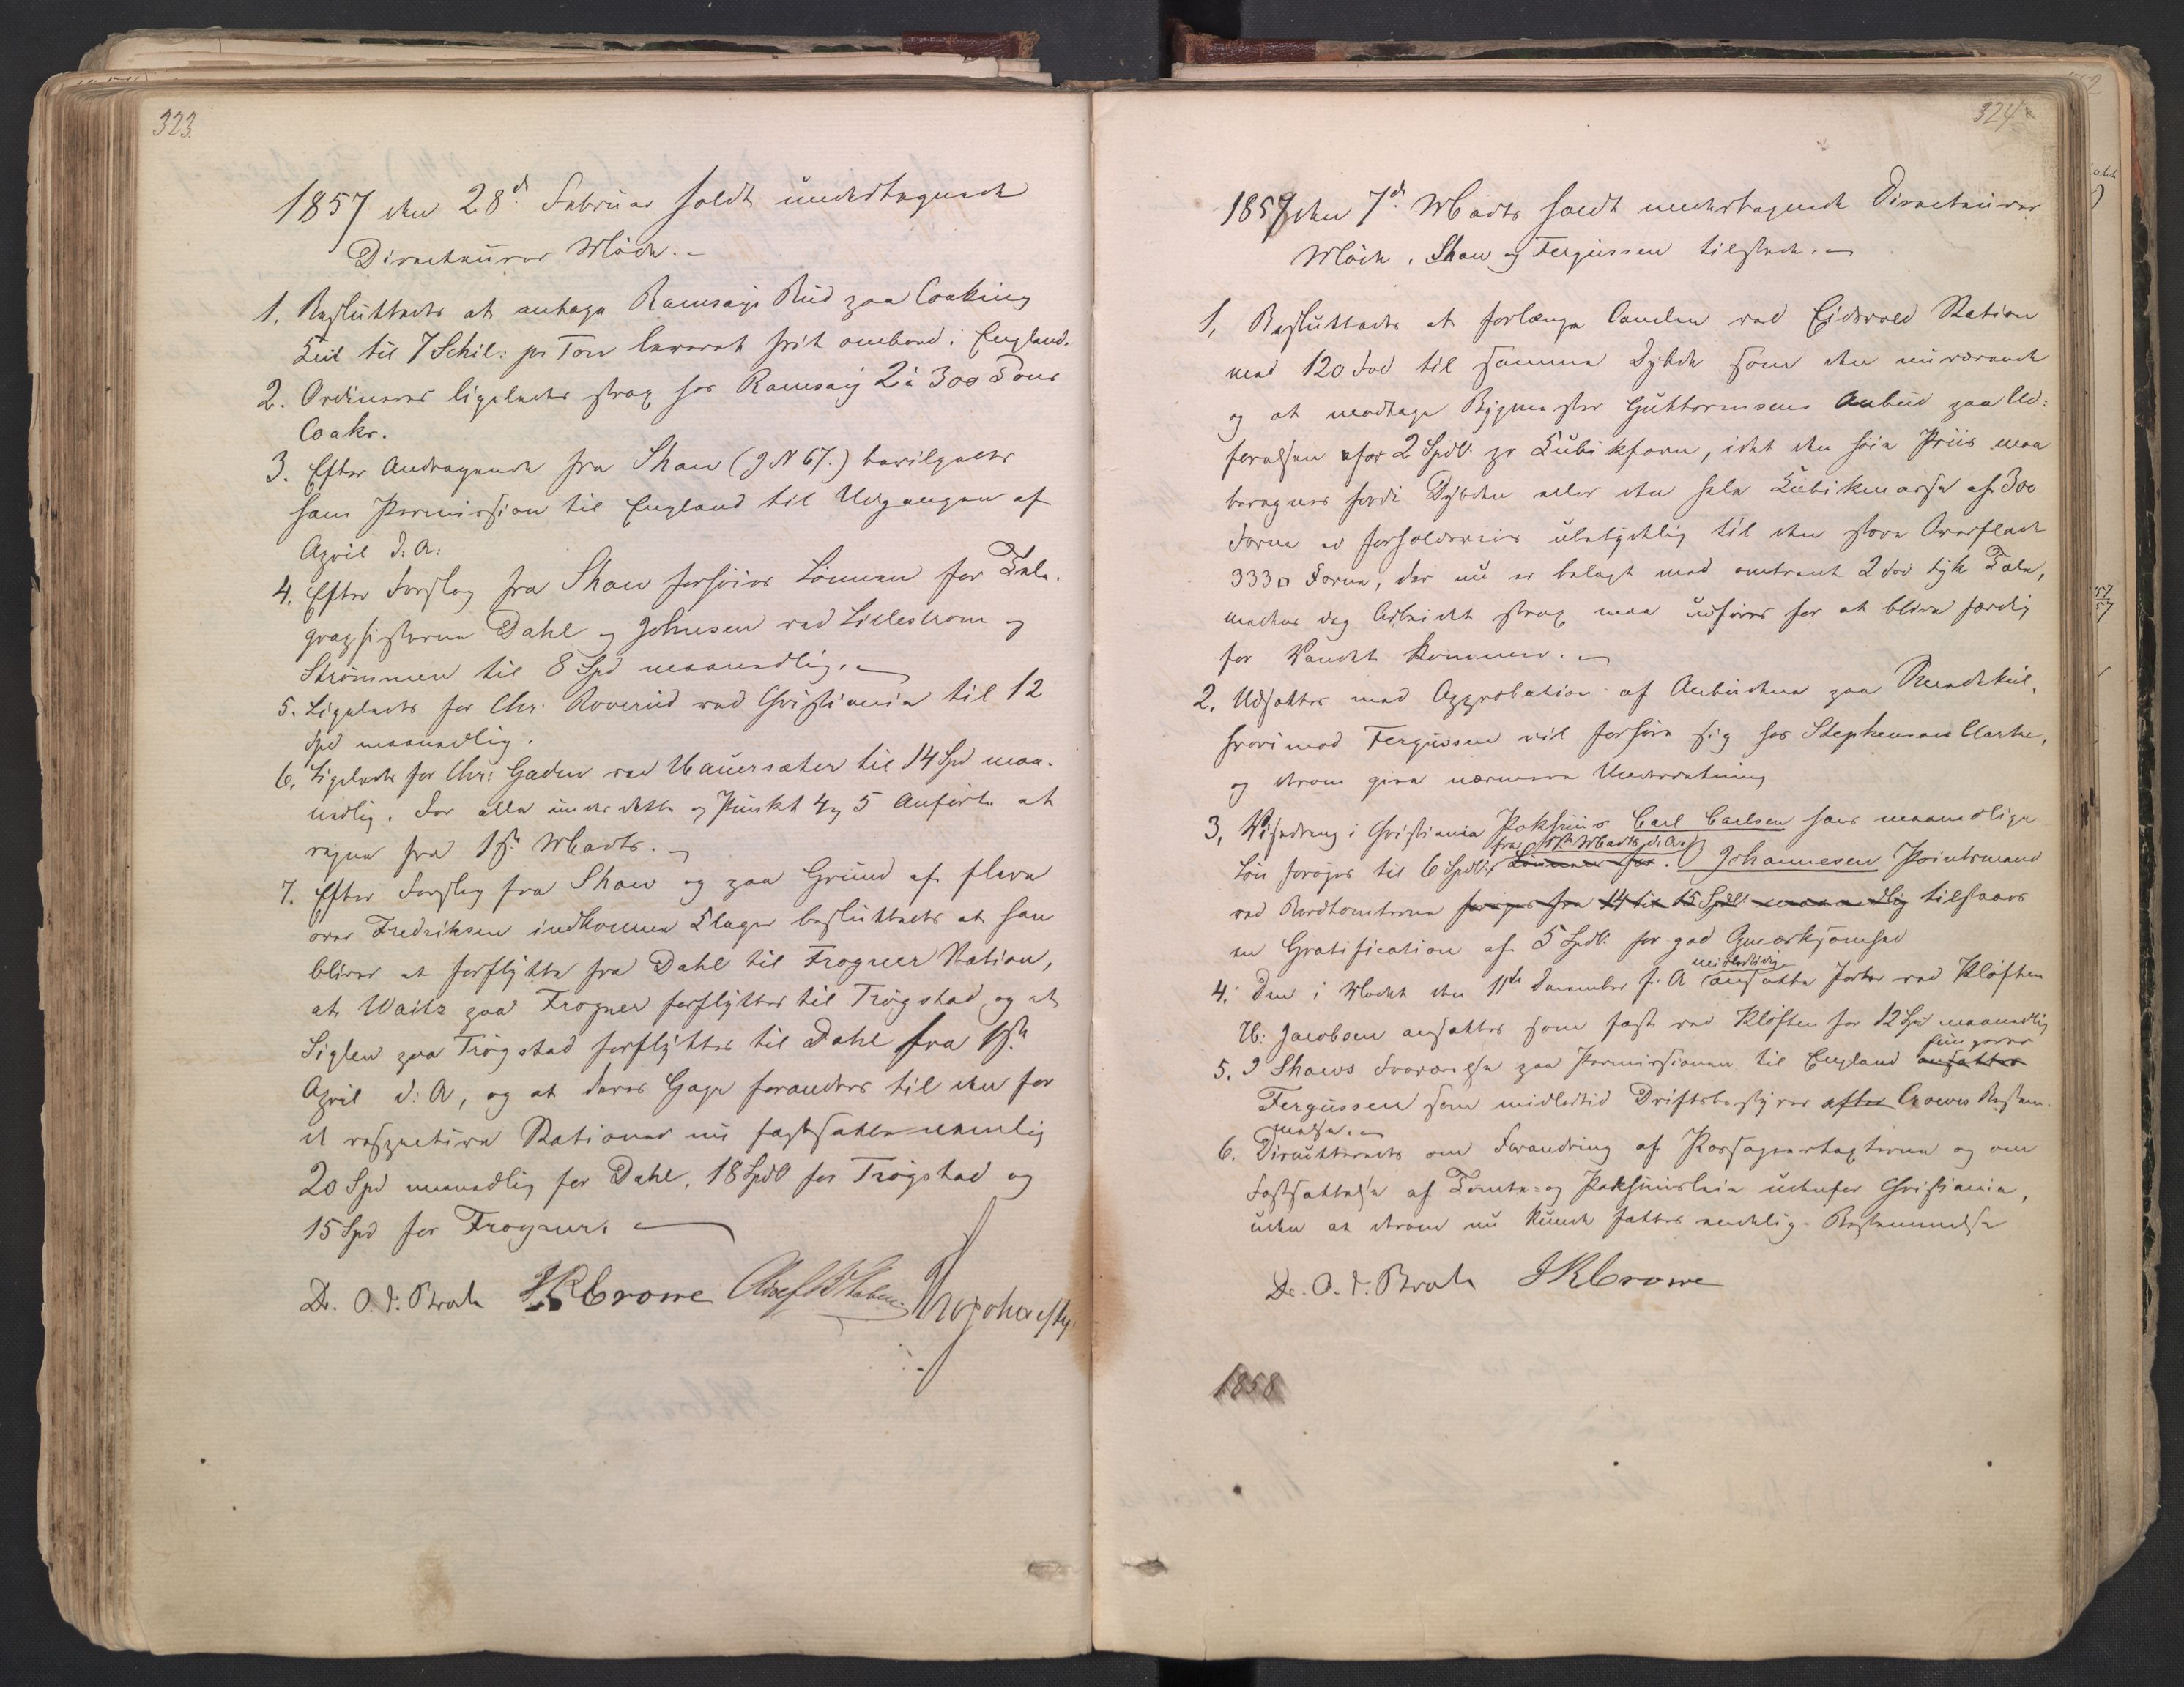 323.
1857 den 28d Februar holdt undertegnede
Directeurer Möde. -
1. Besluttedes at antage Ramsays Bud paa Coaking
Kul til 7 Schil: pr Ton leveret frit ombord i England.
2. Ordineres ligeledes strax hos Ramsay 2 à 300 Tons
Coaks.
3. Efter Andragende fra Shaw (J N 67.) bevilgedes
ham Permission til England til Udgangen af
April d: A:
4. Efter Forslag fra Shaw forhöies Lönnen for Tele-
graphisterne Dahl og Johnsen ved Lilleström og
Strömmen til 8 Spd maanedlig. -
5. Ligeledes for Chr. Roverud ved Christiania til 12
Spd maanedlig.
6. Ligeledes for Chr: Gaden ved Hauersæter til 14 Spd maa-
nedlig. For alle under dette og Punkt 4 og 5 Anförte at
regne fra 1ste Marts. -
7. Efter Forslag fra Shaw og paa Grund af flere
over Fredriksen indkomne Klager besluttedes at han
bliver at forflytte fra Dahl til Frogner Station,
at Waitz paa Frogner forflyttes til Trögstad og at
Siglen paa Trögstad forflyttes til Dahl fra 1ste
April d: A, og at deres Gage forandres til den for
de respective Stationer nu fastsatte nemlig
20 Spd maanedlig for Dahl, 18 Spdl for Trögstad og
15 Spd for Frogner. -
Dr. O. J. Broch JRCrowe
324
1857 den 7d Marts holdt undertegnede Directeurer
Möde. Shaw og Fergussen tilstede. -
1, Besluttedes at forlænge Canalen ved Eidsvold Station
med 120 Fod til samme Dybde som den nuværende
og at modtage Bygmester Guttormsens Anbud paa Ud-
förelsen for 2 Spdl. pr Kubikfavn, idet den höie Priis maa
beregnes fordi Dybden eller den hele Kubikmasse af 300
Favne er forholdsviis ubetydelig til den store Overflade
333 □ Favne, der nu er belagt med omtrent 2 Fod tyk Tæle,
medens dog Arbeidet strax maa udföres for at blive færdig
för Vandet kommer. -
2. Udsattes med Approbation af Anbudene paa Smedekul,
hvorimod Fergussen vil forhöre sig hos Stephenson Clarke,
og derom give nærmere Underretning
3, Visedreng i Christiania Pakhuus Carl Carlsen hans maanedlige
Lön foröges til 6 Spdl. fra 1ste Marts d. A. Lönnen for. Johannesen Pointsmand
ved Rørdtomterne foröges fra 14 til 15 Spdl maanedlig tilstaaes
en Gratification af 5 Spdl. for god Opmærksomhed
4. Den i Mödet den 11te December f. A midlertidig ansatte Porter ved Klöften
H: Jacobsen ansættes som fast ved Klöften for 12 Spd maanedlig
5. I Shaws Fraværelse paa Permissionen til England ansættes fungerer
Fergussen som midlertid Driftsbestyrer efter Crowes Bestem-
melse. -
6. Discutteredes om Forandring af Passagertaxterne og om
Fastsættelse af Tomte- og Pakhuusleie udenfor Christiania,
uden at derom nu kunde fattes endelig Bestemmelse
Dr. O. J. Broch JRCrowe
1858